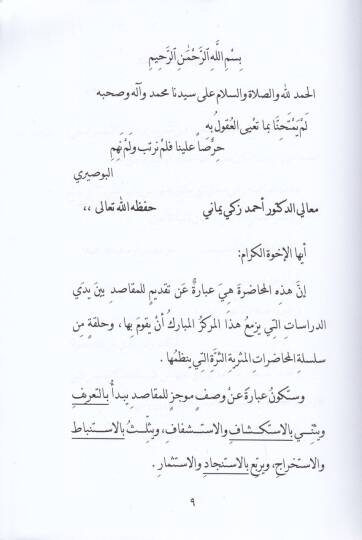 بِسْمِ اللَّهِ الرَّحْمَٰنِ الرَّحِيمِ
الحمد لله والصلاة والسلام على سيدنا محمد وآله وصحبه
لَمْ يَمْتَحِنَّا بما تَعْيى العُقولُ بِهِ
حِرْصًا علينا فلمْ نرتب ولَمْ نَهِمِ
البوصيري
معالي الدكتور أحمد زكي يماني حفظه الله تعالى ،،
أيها الإخوة الكرام:
إنَّ هذِهِ المحاضرةَ هِيَ عبارةٌ عَن تقديمٍ للمقاصدِ بينَ يدَي
الدراساتِ التِي يزمعُ هذَا المركزُ المباركُ أنْ يقومَ بِها، وحلقةٍ مِن
سلسلةِ المحاضراتِ المثريةِ الثرَّةِ التِي ينظمُها.
وستكونُ عبارةً عَنْ وصفٍ موجزٍ للمقاصدِ يبدأُ بالتعريفِ
ويثنِّي بالاستكشافِ والاستشفافِ، ويثلِّثُ بالاستنباطِ
والاستخراجِ، ويربِّع بالاستنجادِ والاستثمارِ.
٩